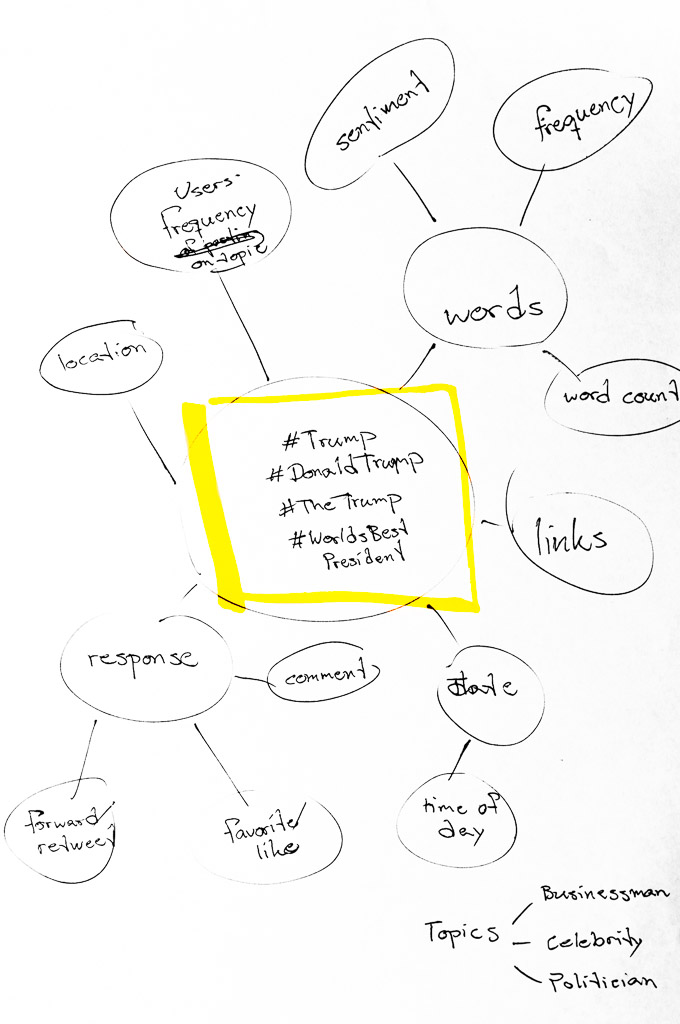 sentiment
frequency
Users'
frequency
on topic
words
location
word count
#Trump
#DonaldTrump
#TheTrump
#WorldsBest
President
links
response
comment
date
forward/
retweet
favorite/
like
time of
day
Businessman
Topics
Celebrity
Politician